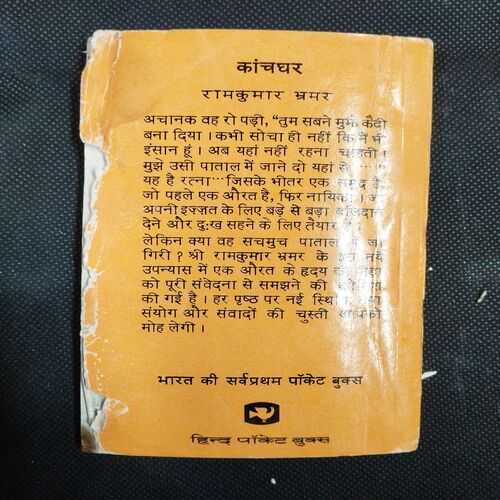 कांचघर
रामकुमार भ्रमर
अचानक वह रो पड़ी, “तुम सबने मुझे कैदी
बना दिया । कभी सोचा ही नहीं कि मैं भी
इंसान हूं । अब यहां नहीं रहना चाहती ।
मुझे उसी पाताल में जाने दो यहां से......”
यह है रत्ना...जिसके भीतर एक समुद्र है,
जो पहले एक औरत है, फिर नायिका । जो
अपनी इज़्ज़त के लिए बड़े से बड़ा बलिदान
देने और दुःख सहने के लिए तैयार है ।
लेकिन क्या वह सचमुच पाताल में जा
गिरी ? श्री रामकुमार भ्रमर के इस नये
उपन्यास में एक औरत के हृदय की
को पूरी संवेदना से समझने की कोशिश
की गई है । हर पृष्ठ पर नई स्थिति,
संयोग और संवादों की चुस्ती आपको
मोह लेगी ।
भारत की सर्वप्रथम पॉकेट बुक्स
हिन्द पॉकेट बुक्स